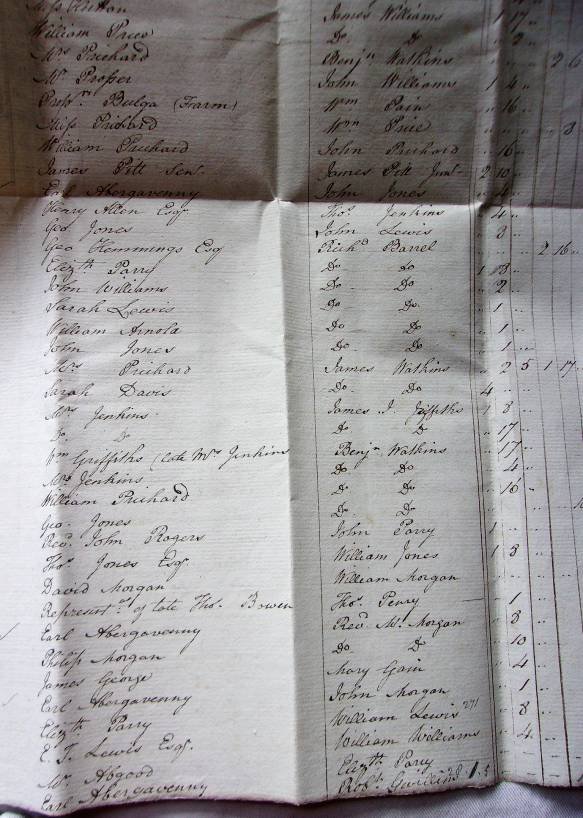 James Williams " 17 "
William Price Do Do " 2 "
Mrs Prichard Benjn Watkins 2 6
Mr Prosser John Williams 1 4 "
Bulga (Farm) Wm Pain " 16 "
Miss Prichard Wm Price 8
William Prichard John Prichard " 16 "
James Pitt Senr. James Pitt Junr. 2 10
Earl Abergavenny John Jones " 4 "
Henry Allen Esqr. Thos Jenkins " 4 "
Geo Jones John Lewis " 3 "
Geo Hemmings Esq Richd Barrel 2 16
Elizth Parry Do Do 1 13
John Williams Do Do " 2 "
Sarah Lewis Do Do " 1
William Arnold Do Do " 1
John Jones Do Do " 1 "
Mrs Prichard James Watkins " 2 5 1 17
Sarah Davis Do Do 4
Mrs Jenkins James J. Griffiths 1 8
Do Do Do Do " 17 "
Wm Griffiths (late Mrs Jenkins Benjn Watkins " 17 "
Mrs Jenkins Do Do " 4 "
William Prichard Do Do " 16 "
Geo Jones Do Do
Revd. John Rogers John Parry 1
Thos Jones Esqr. William Jones 1 3
David Morgan William Morgan
Represent. of late Thos. Bowen Thos. Penry " 1 "
Earl Abergavenny Revd. Mr. Morgan " 8
Philip Morgan Do Do " 10
James George Mary Gain " 4
Earl Abergavenny John Morgan " 1
Elizth Parry William Lewis 271 " 8
E. T. Lewis Esqr. William Williams " 4
Mr Abgood Elizth Parry
Earl Abergavenny Robt. 1 5